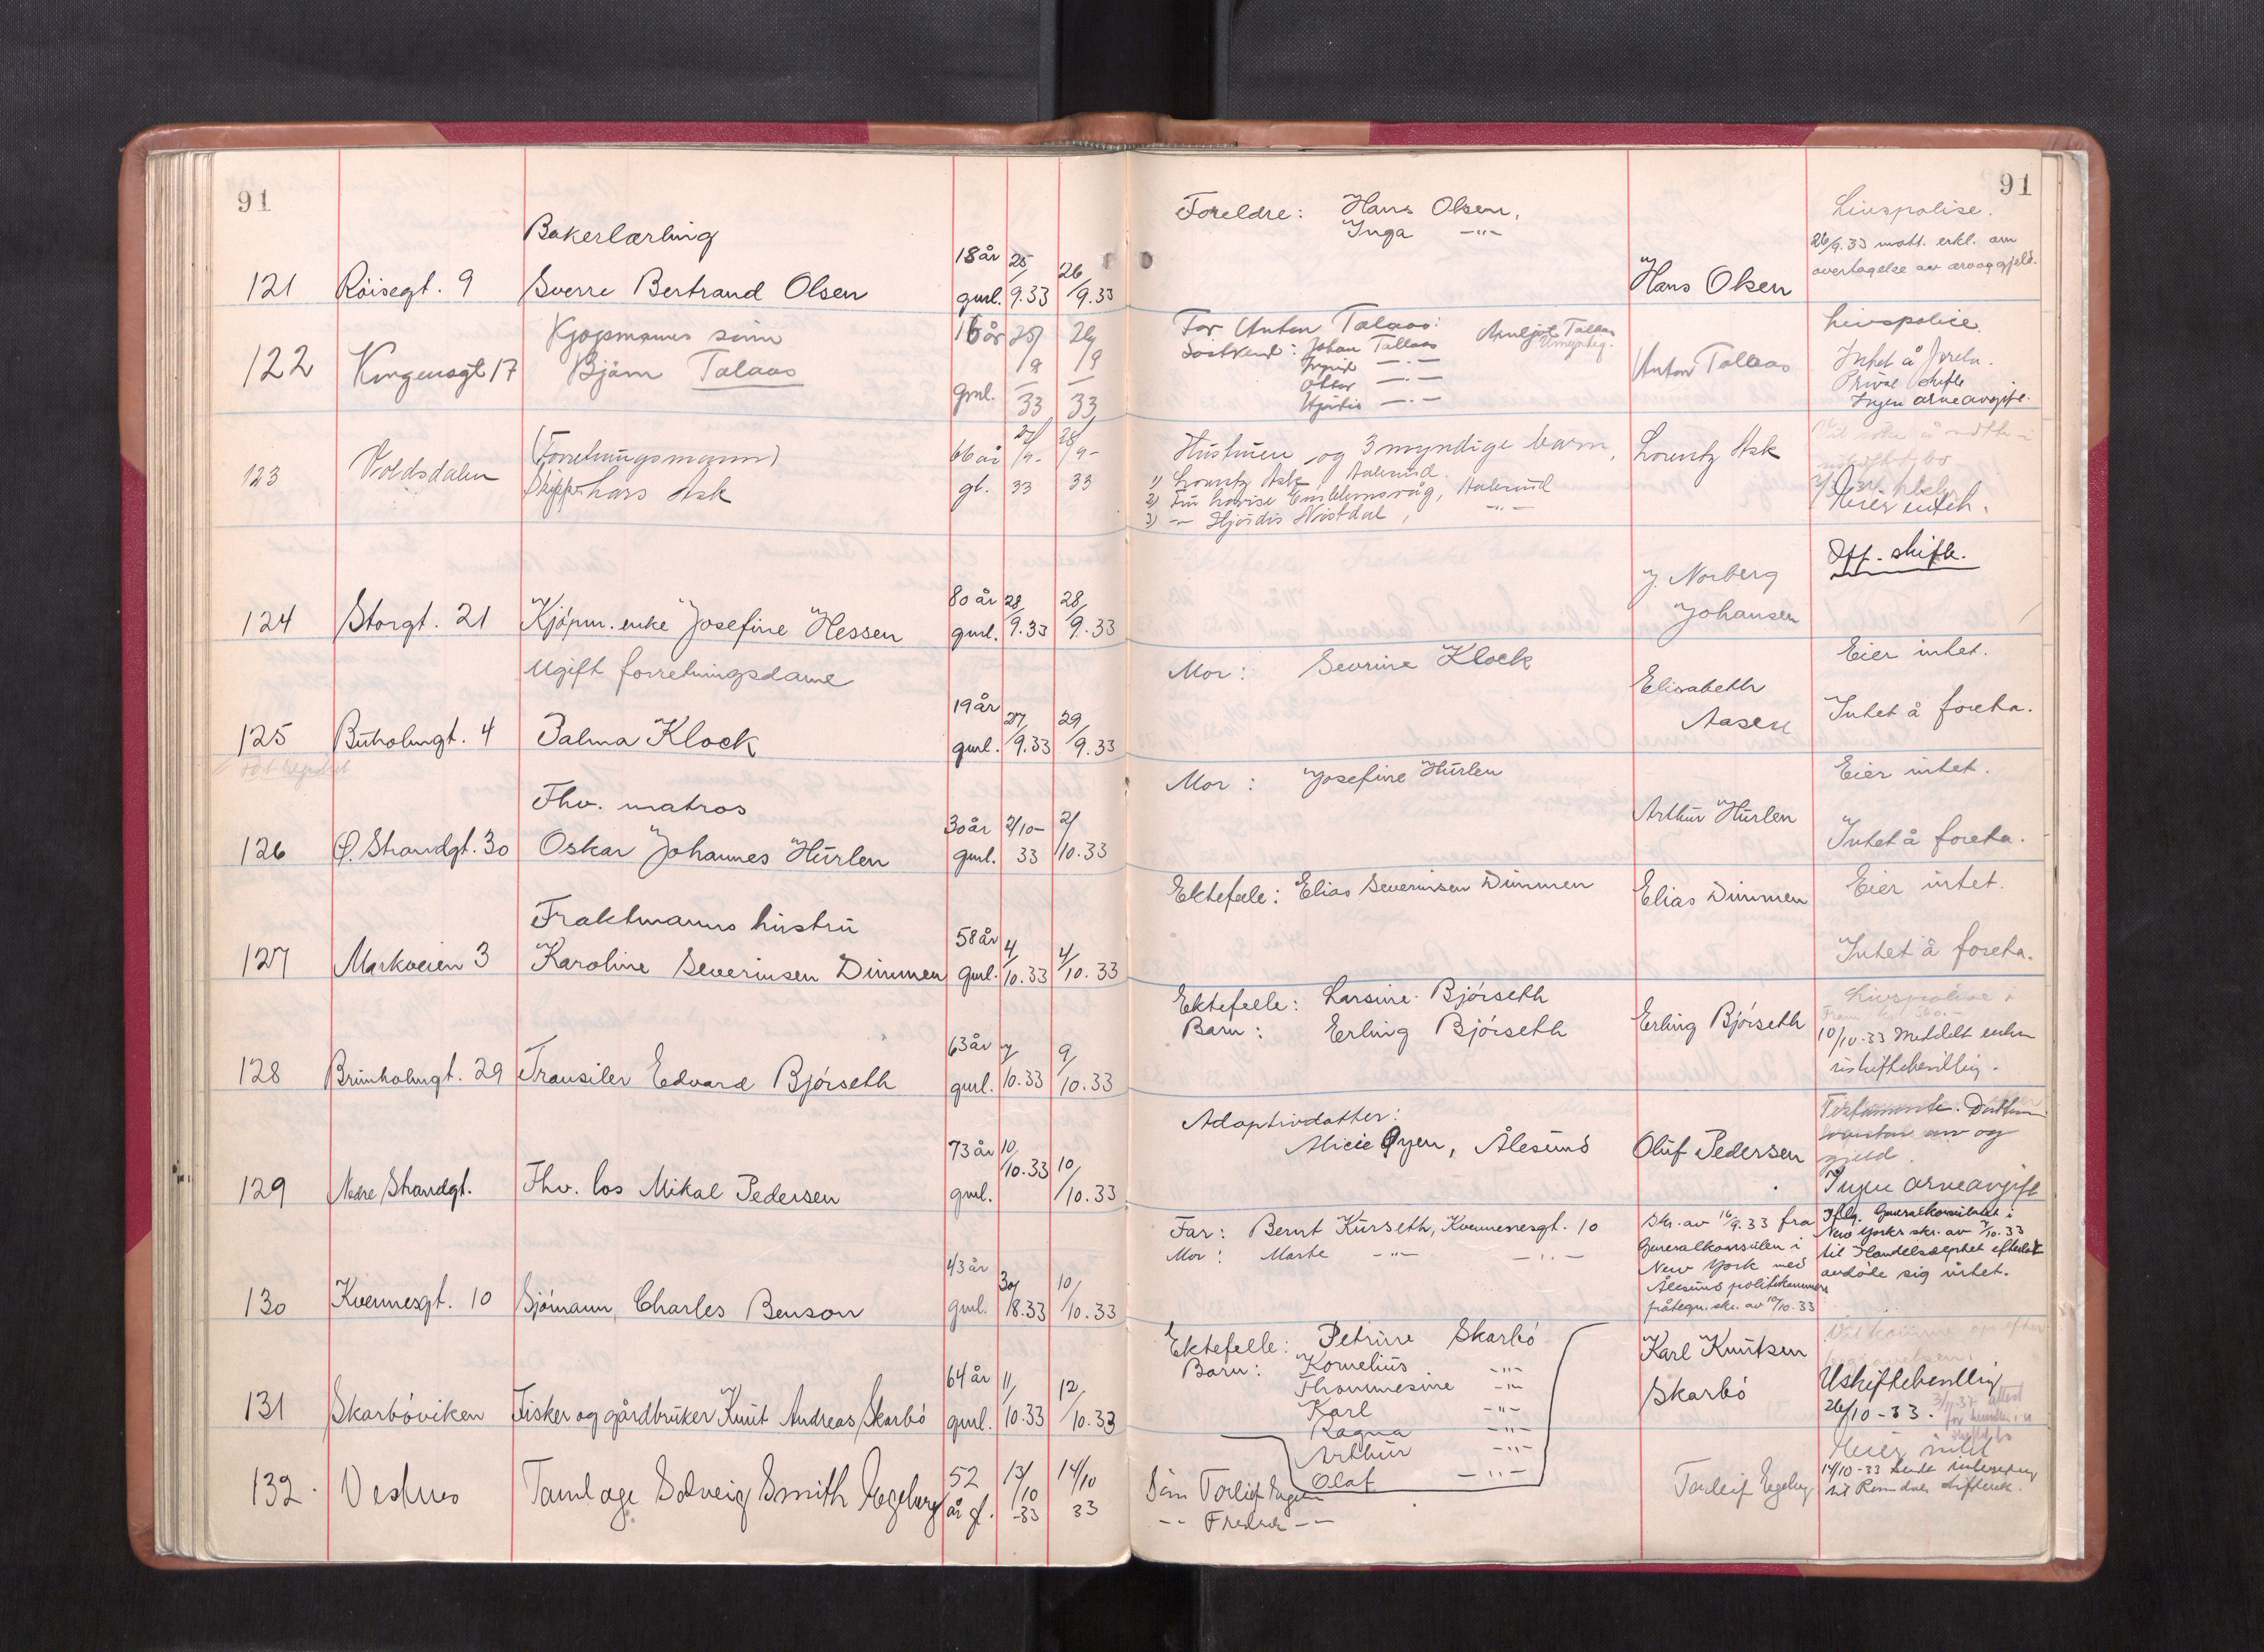 91
Bakerlærling
121 Röisegt. 9 Sverre Bertrand Olsen 18 år gml. 25/9.33 26/9.33
Kjøpmanns sönn
122 Kongensgt 17 Björn Talaas 16 år gml. 25/9 33 26/9 33
(Forretningsmann)
123 Voldsdalen Skipper Lars Ask 66 år gl. 27/9- 33 28/9- 33
124 Storgt. 21 Kjöpm. enke Josefine Hessen 80 år gml. 28/9.33 28/9.33
Ugift forretningsdame
125 Buholmgt. 4 Palma Klock 19 år gml. 27/9.33 29/9.33
Thv. matros
126 Ø. Strandgt. 30 Oskar Johannes Hurlen 30 år gml. 2/10- 33 2/10.33
Fraktmanns hustru
127 Markveien 3 Karoline Severinsen Dimmen 58 år gml. 4/10.33 4/10.33
128 Brunholmgt. 29 Transiler Edvard Bjórseth 63 år gml. 7/10.33 9/10.33
129 Nedre Strandgt. Fhv. los Mikal Pedersen 73 år gml. 10/10.33 10/10.33
130 Kvennesgt. 10 Sjömann, Charles Benson 43 år gml. 30/8.33 10/10.33
131 Skarbóviken Fisker og gårdbruker Knut Andreas Skarbó 64 år gml. 11/10.33 12/10.33
132. Vestnes Tannlæge Solveig Smith Egeberg 52 år gl. 13/10 -33 14/10 33
91
Foreldre: Hans Olsen,
Inga -"-
Hans Olsen
Livspolise.
26/9.33 mott. erkl. om
overtagelse av arv og gjeld.
Far Anton Talaas:
Söskend: Johan Tallaas
Ingrid -.-
Ottar -.-
Hjördis -.-
Anton Tallaas
Livspolise.
Intet å foreta.
Privat skifte
Ingen arveavgift.
Hustruen og 3 myndige barn,
1) Lorentz Ask, Aalesund.
2) Fru Lovise Emblemsvåg, Aalesund
3) -"- Hjördis Nistdal, -"-
Lorentz Ask
Eier intet.
J. Norberg
Johansen
Off. skifte.
Mor: Sevrine Klock
Elisabeth
Aasen
Eier intet.
Intet å foreta.
Mor: Josefine Hurlen
Arthur Hurlen
Eier intet.
Intet å foreta.
Ektefelle: Elias Severinsen Dimmen
Elias Dimmen
Eier intet.
Intet å foreta.
Ektefelle: Larsine Bjórseth
Barn: Erling Bjórseth
Erling Bjórseth
Livspolise
10/10-33 Meddelt enken
uskiftebevilling.
Adoptivdatter:
Alicie Øyen, Ålesund
Oluf Pedersen
Testamente. Datteren
overtar arv og
gjeld.
Ingen arveavgift
Far: Bernt Kurseth, Kvennesgt. 10
Mor: Marte -"- -"-
Skr. av 16/9.33 fra
Generalkonsulen i
New York med
Ålesund politikammers
påtegn. skr. av 10/10.33
Iflg. Generalkonsulatet i
New Yorks skr. av 7/10.33
til Handelsdeptet efterlot
avdöde sig intet.
Ektefelle: Petrine Skarbó
Barn: Kornelius -"-
Thommesine -"-
Karl -"-
Ragna -"-
Arthur -"-
Olaf -"-
Karl Knutsen
Skarbó
Uskiftebevilling
26/10-33.
Sön Torleif Egeberg
-"- Fredrik -"-
Torleif Egeberg
Eier intet
14/10-33 sendt
til Romsdal skifterett.